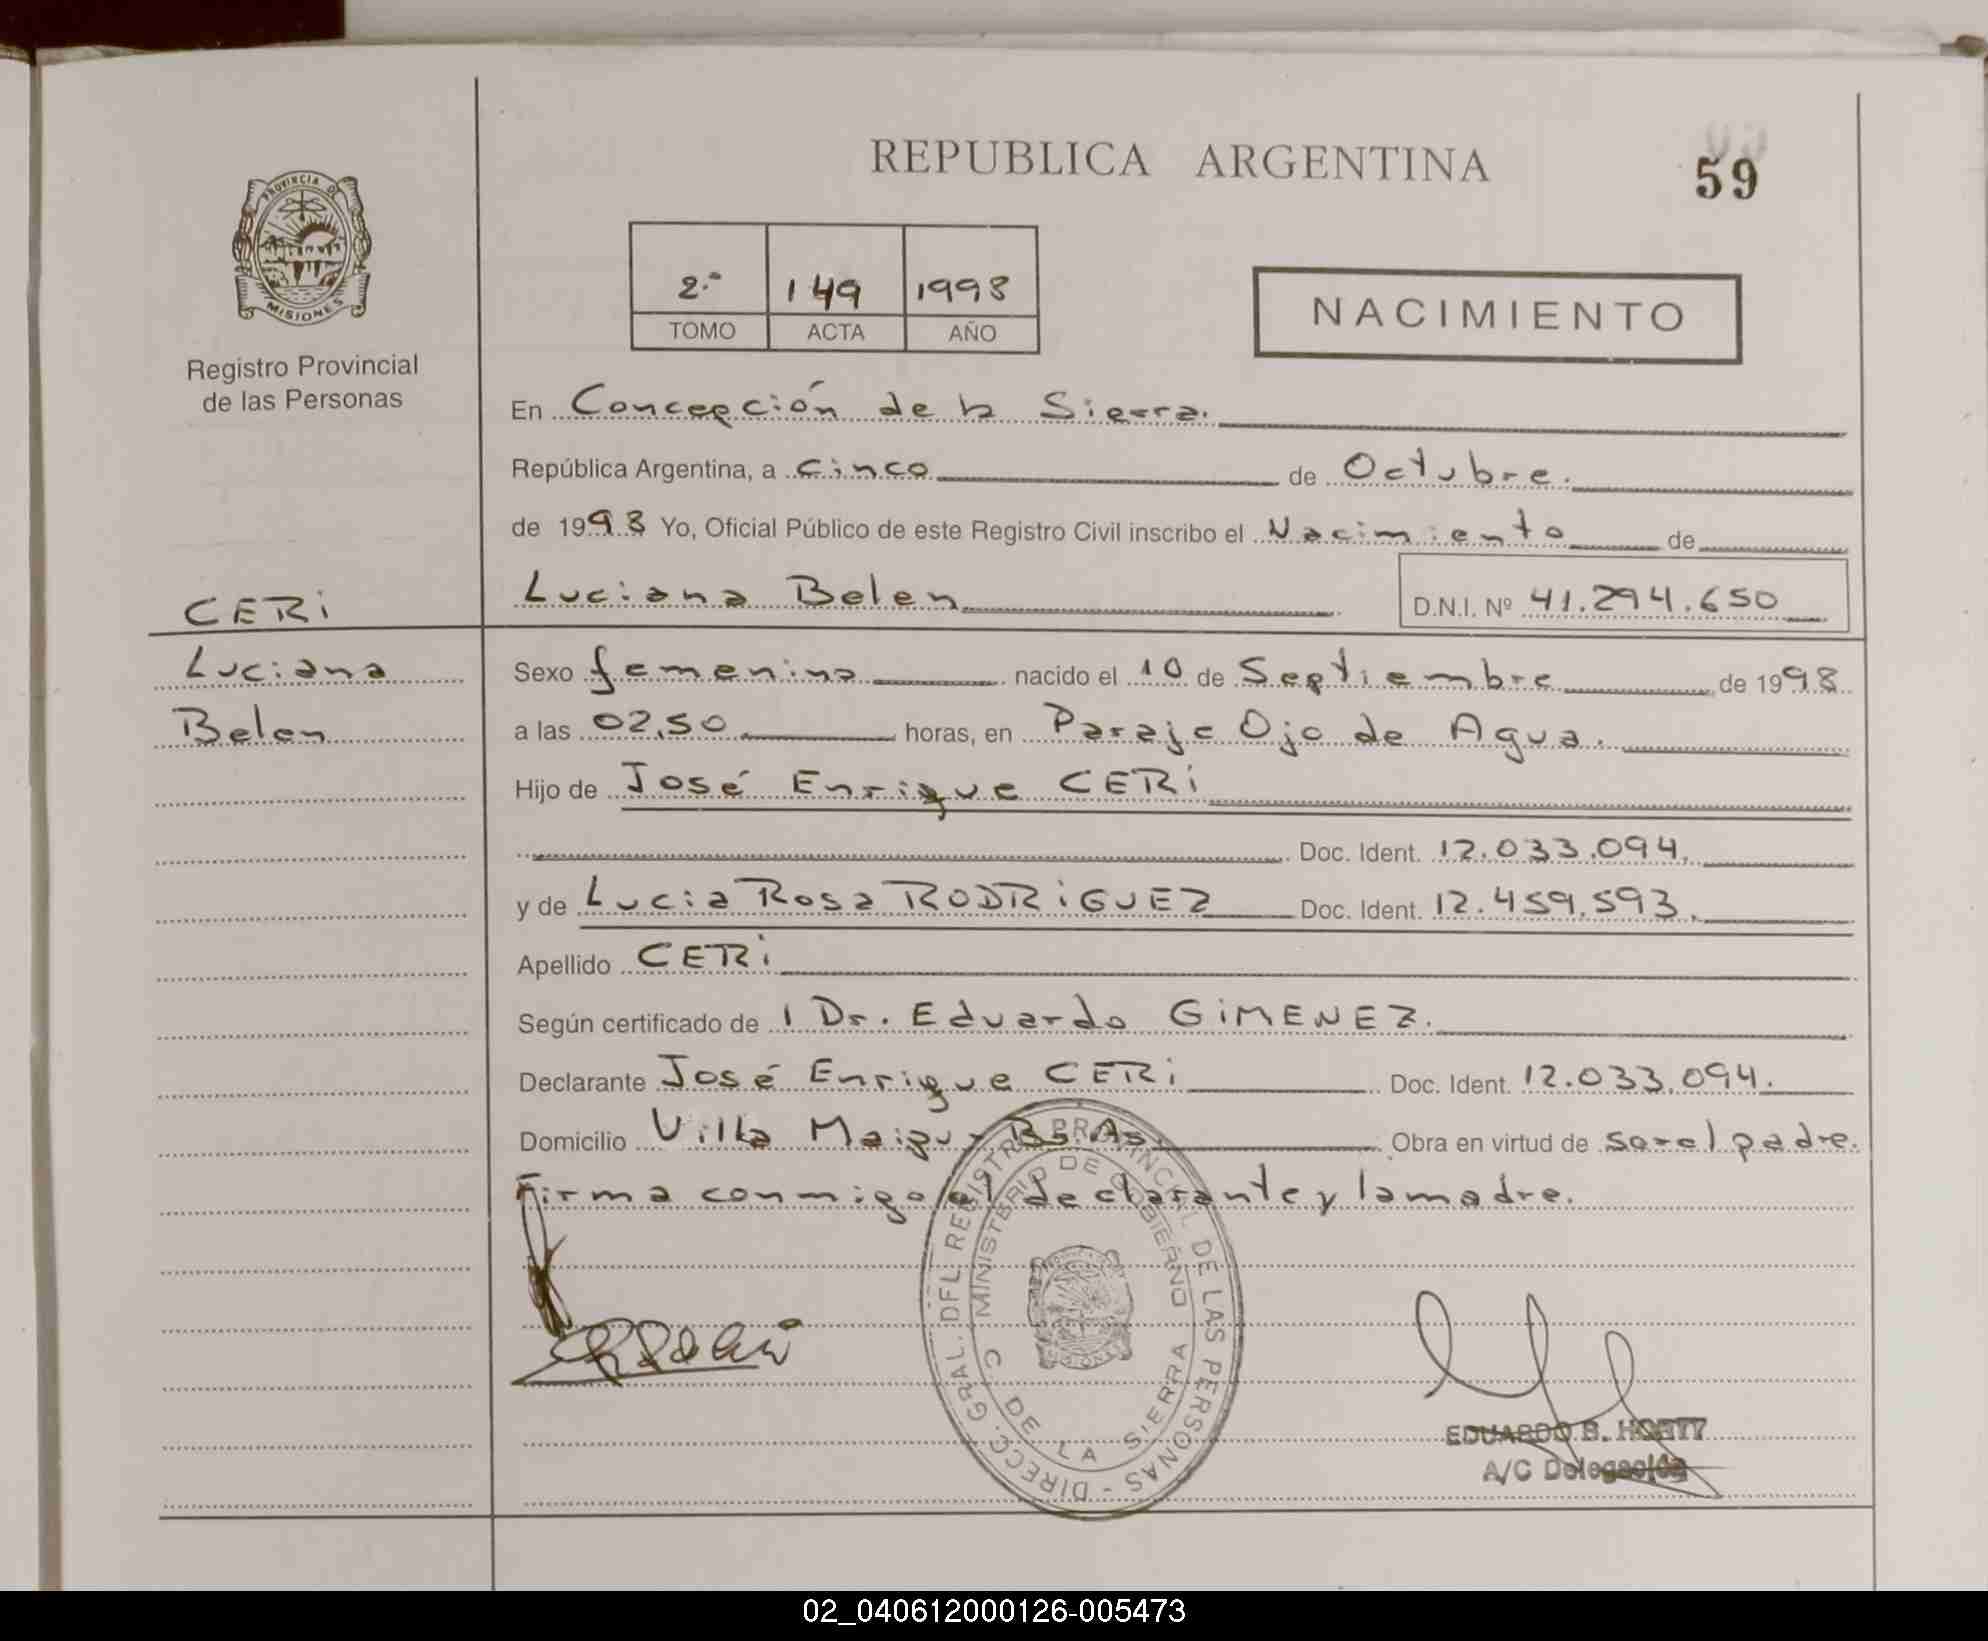 REPUBLICA ARGENTINA
59
PROVINCIA DE
MISIONES
Registro Provincial
de las Personas
2.º 149 1998
TOMO ACTA AÑO
NACIMIENTO
En Concepción de la Sierra.
República Argentina, a cinco de Octubre.
de 1998 Yo, Oficial Público de este Registro Civil inscribo el Nacimiento de
CERi
Luciana Belen D.N.I. Nº 41.294.650
Luciana
Belen
Sexo femenino nacido el 10 de Septiembre de 1998
a las 02,50 horas, en Paraje Ojo de Agua.
Hijo de José Enrique CERi
Doc. Ident. 12.033.094.
y de Lucia Rosa RODRiGUEZ Doc. Ident. 12.459.593.
Apellido CERi
Según certificado de 1 Dr. Eduardo GiMENEZ.
Declarante José Enrique CERi Doc. Ident. 12.033.094.
Domicilio Villa Maipu Bs.As. Obra en virtud de ser el padre.
Firma conmigo el declarante y la madre.
DIRECC. GRAL. DEL REGISTRO PROVINCIAL DE LAS PERSONAS -
MINISTERIO DE GOBIERNO
C DE LA SIERRA
MISIONES
EDUARDO B.
A/C
02_040612000126-005473